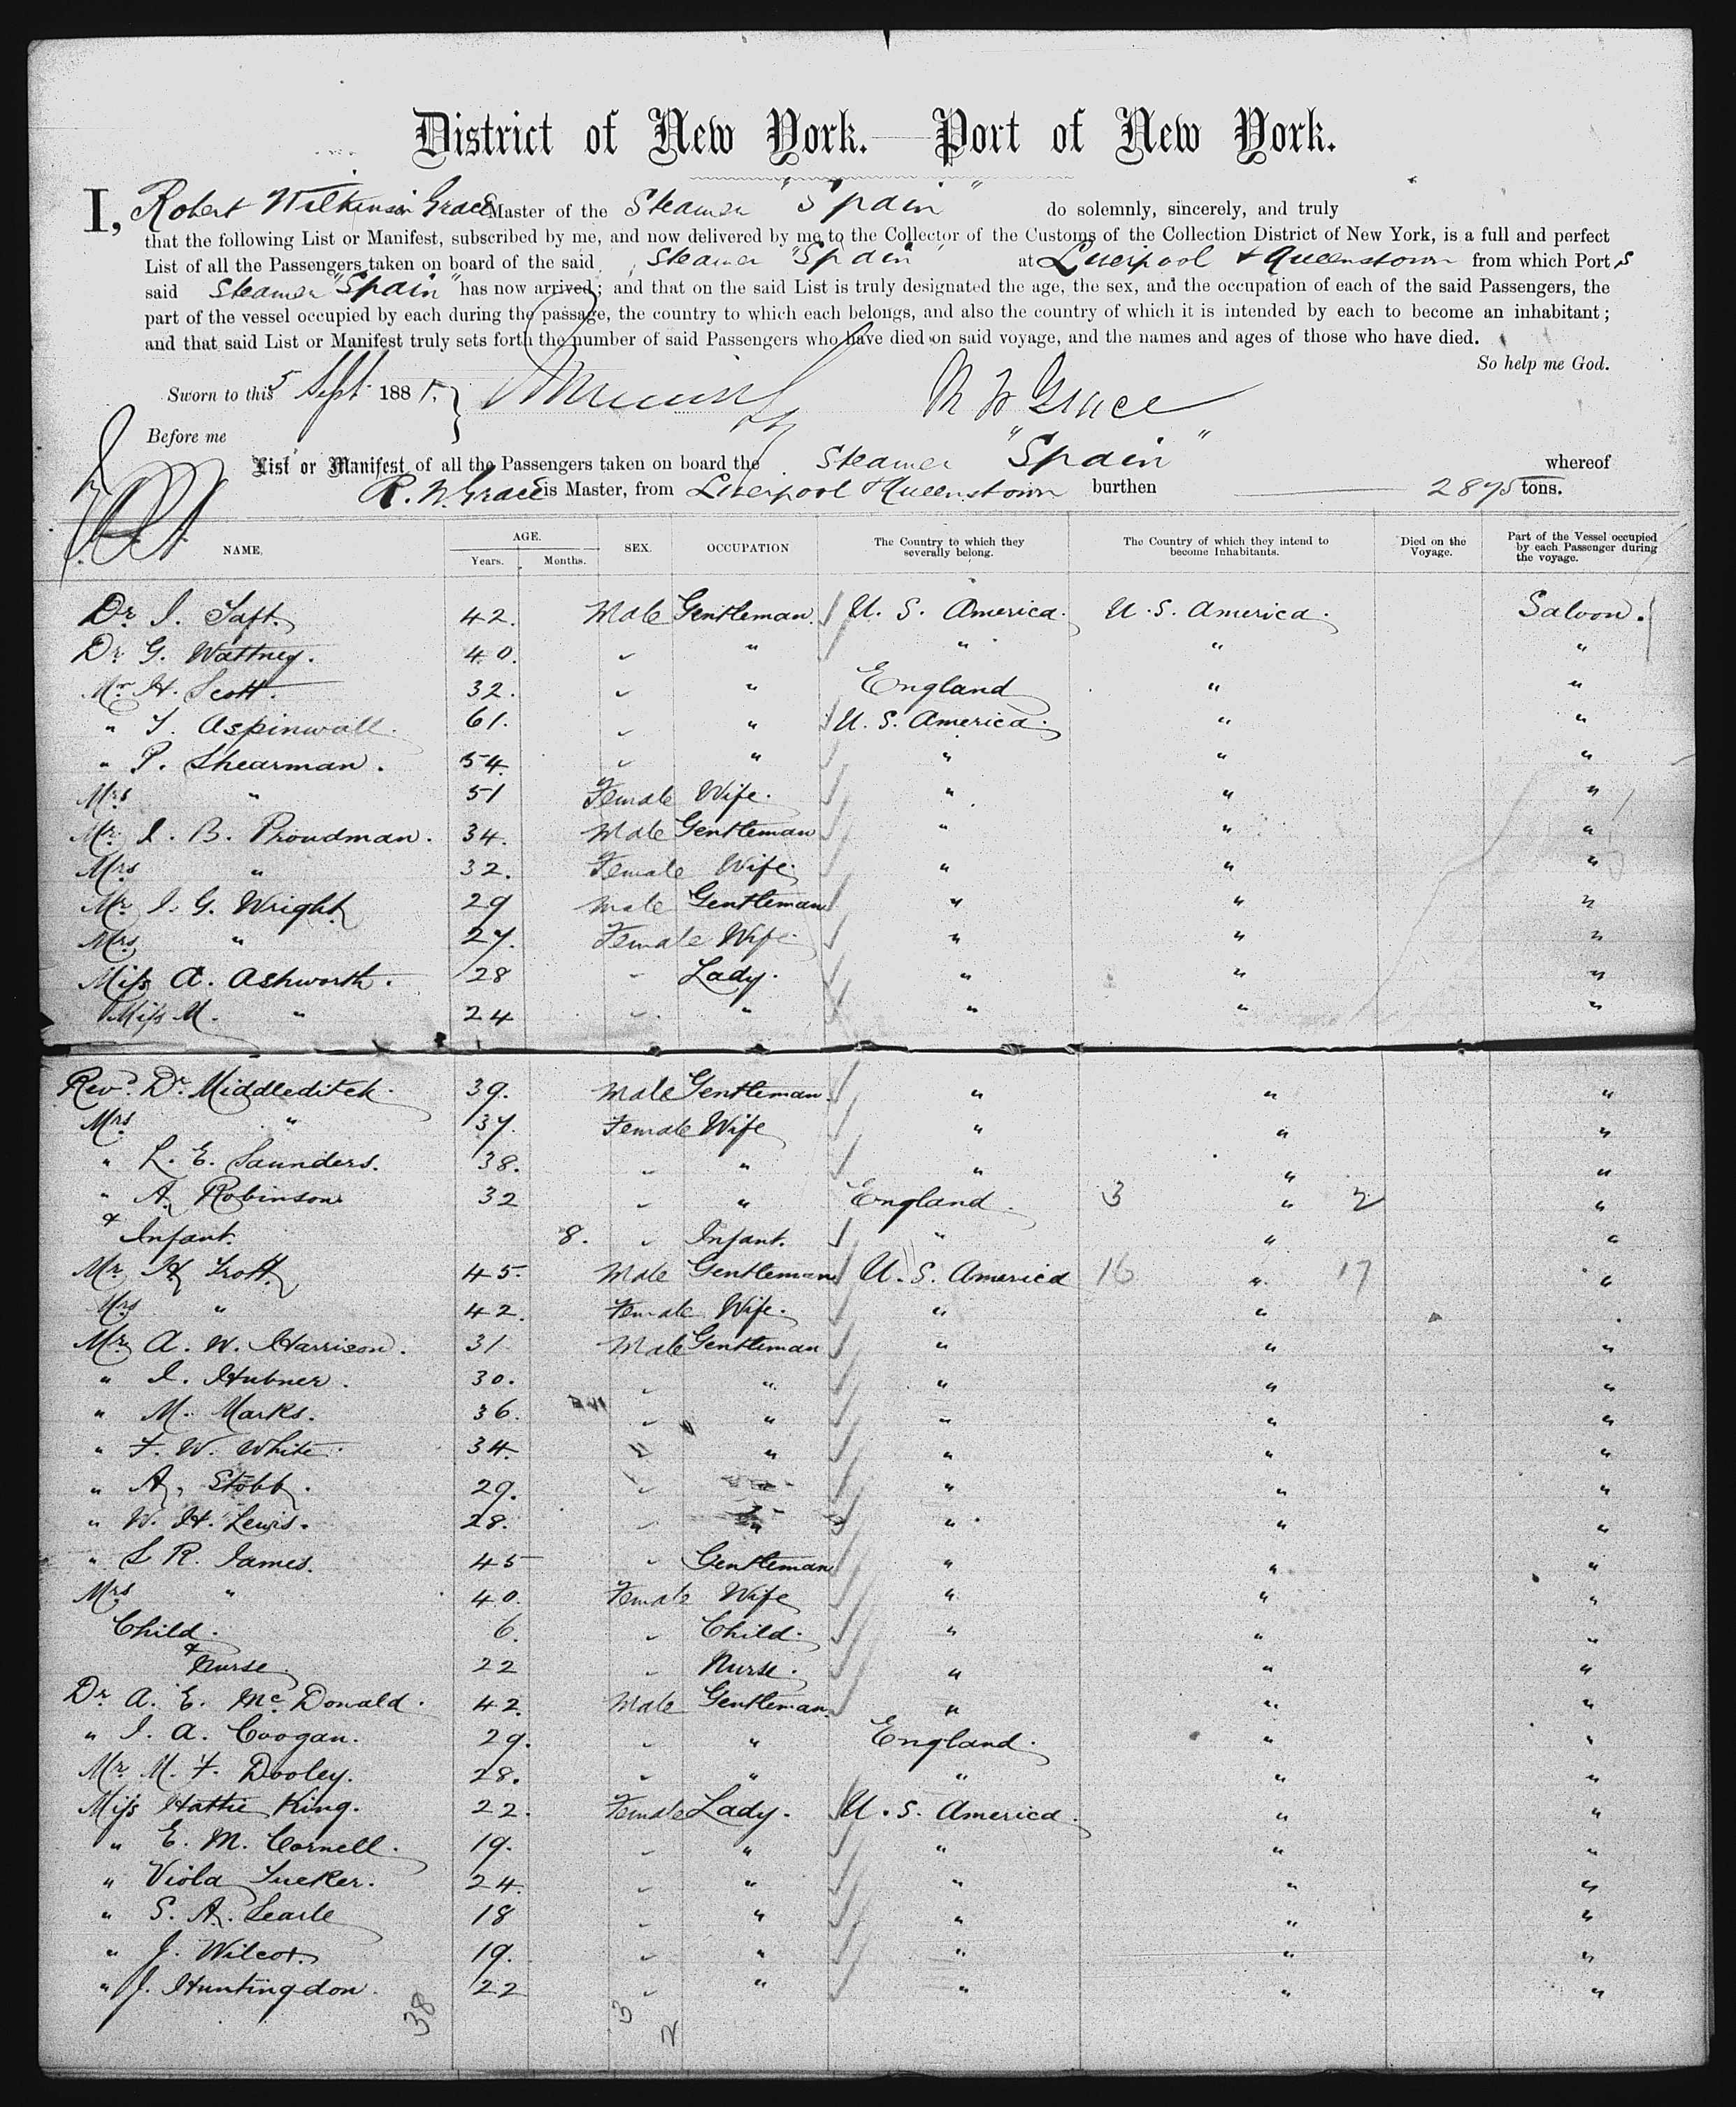 District of New York. — Port of New York.
I, Robert Wilkinson Grace Master of the Steamer "Spain" do solemnly, sincerely, and truly
that the following List or Manifest, subscribed by me, and now delivered by me to the Collector of the Customs of the Collection District of New York, is a full and perfect
List of all the Passengers taken on board of the said Steamer "Spain" at Liverpool & Queenstown from which Port s
said Steamer "Spain" has now arrived; and that on the said List is truly designated the age, the sex, and the occupation of each of the said Passengers, the
part of the vessel occupied by each during the passage, the country to which each belongs, and also the country of which it is intended by each to become an inhabitant;
and that said List or Manifest truly sets forth the number of said Passengers who have died on said voyage, and the names and ages of those who have died.
So help me God.
Sworn to this 5 Sept 188 R W Grace
Before me
List or Manifest of all the Passengers taken on board the Steamer "Spain" whereof
R. W. Grace is Master, from Liverpool & Queenstown burthen 2875 tons.
NAME. AGE. Years. Months. SEX. OCCUPATION The Country to which they severally belong. The Country of which they intend to become Inhabitants. Died on the Voyage. Part of the Vessel occupied by each Passenger during the voyage.
Dr. I. Taft. 42. Male Gentleman. U. S. America. U. S. America. Saloon.
Dr. G. Wattney. 40. " " " " "
Mr. H. Scott. 32. " " England " "
" T. Aspinwall. 61. " " U. S. America. " "
" P. Shearman. 54. " " " " "
Mrs " 51 Female Wife. " " "
Mr. I. B. Proudman. 34. Male Gentleman " " "
Mrs " 32. Female Wife. " " "
Mr. I. G. Wright 29 Male Gentleman " " "
Mrs " 27. Female Wife " " "
Miss A. Ashworth. 28 " Lady. " " "
Miss M. " 24 " " " " "
Revd. Dr. Middleditch. 39. Male Gentleman. " " "
Mrs " 37. Female Wife " " "
" L. E. Saunders. 38. " " " " "
" A. Robinson 32 " " England. 3 " 2 "
& Infant. 8. " Infant. " " "
Mr. H. Trott 45. Male Gentleman U. S. America 16 " 17 "
Mrs " 42. Female Wife. " "
Mr. A. W. Harrison. 31. Male Gentleman " " "
" I. Hubner. 30. " " " " "
" M. Marks. 36. " " " " "
" F. W. White. 34. " " " " "
" A. Stobb. 29. " " " "
" W. H. Lewis. 28. " " " " "
" L R. James. 45 " Gentleman " " "
Mrs " 40. Female Wife " " "
Child. 6. " Child. " " "
& Nurse. 22 " Nurse. " " "
Dr. A. E. McDonald. 42. Male Gentleman. " " "
" I. A. Coogan. 29. " " England. " "
Mr. M. F. Dooley. 28. " " " " "
Miss Hattie King. 22. Female Lady. U. S. America. " "
" E. M. Cornell. 19. " " " " "
" Viola Tucker. 24. " " " " "
" S. A. Searle 18 " " " " "
" J. Wilcox. 19. " " " " "
" J. Huntingdon. 22 " " " " "
38 3 2